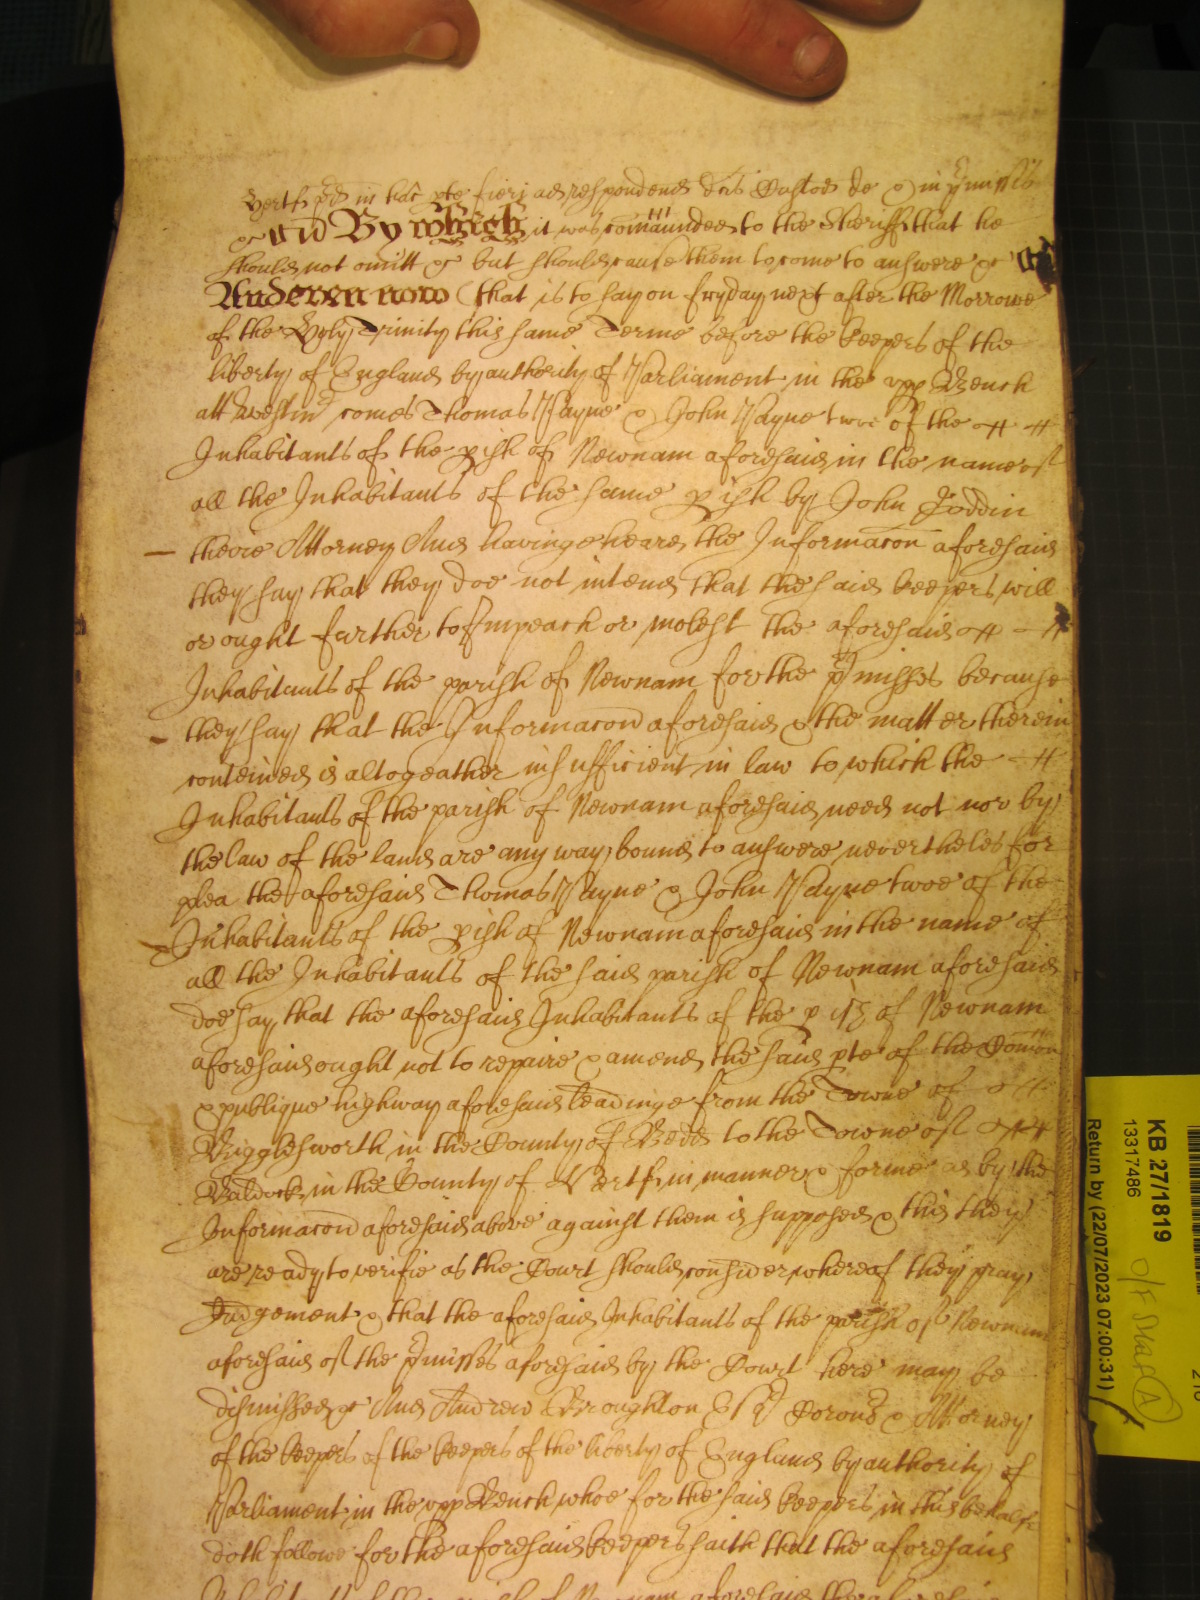 Hertf pd in hac pte fieri ad respondend dcis Custod de & in pmissis
&c And By which it was comaunded to the Sheriff that he
should not omitt &c but should cause them to come to answere &c And
And even now (that is to say on fryday next after the Morrowe
of the Holy Trinity this same Terme before the keepers of the
liberty of England by authority of Parliament in the upp Bench
att Westmr comes Thomas Payne & John Payne twoe of the
Inhabitants of the pish of Newnam aforesaid in the name of
all the Inhabitants of the same pish by John Goddin
theire Attorney And havinge heard the Informacon aforesaid
they say that they doe not intend that the said keepers will
or ought further to Impeach or molest the aforesaid
Inhabitants of the parish of Newnam for the pmisses because
they say that the Informacon aforesaid & the matter therein
conteined is altogeather insufficient in law to which the
Inhabitants of the parish of Newnam aforesaid need not nor by
the law of the land are any way bound to answere neverthelesse for
plea the aforesaid Thomas Payne & John Payne twoe of the
Inhabitants of the pish of Newnam aforesaid in the name of
all the Inhabitants of the said parish of Newnam aforesaid
doe say that the aforesaid Inhabitants of the pish of Newnam
aforesaid ought not to repaire & amend the said pte of the Comon
& publique highway aforesaid leadinge from the Towne of
Bigglesworth in the County of Bedd to the Towne of
Baldock in the County of Hertf in manner & forme as by the
Informacon aforesaid above against them is supposed & this they
are ready to verifie as the Court should consider whereof they pray
Judgement & that the aforesaid Inhabitants of the parish of Newnam
aforesaid of the pmisses aforesaid by the Court here may be
dismissed &c And Andrew Broughton Coron & Attorney
of the keepers of the keepers of the liberty of England by authority of
Parliament in the upp Bench whoe for the said keepers in this behalfe
doth followe for the aforesaid keepers saith that the aforesaid
KB 27/1819
13317486
Return by (22/07/2023 07:00:31)